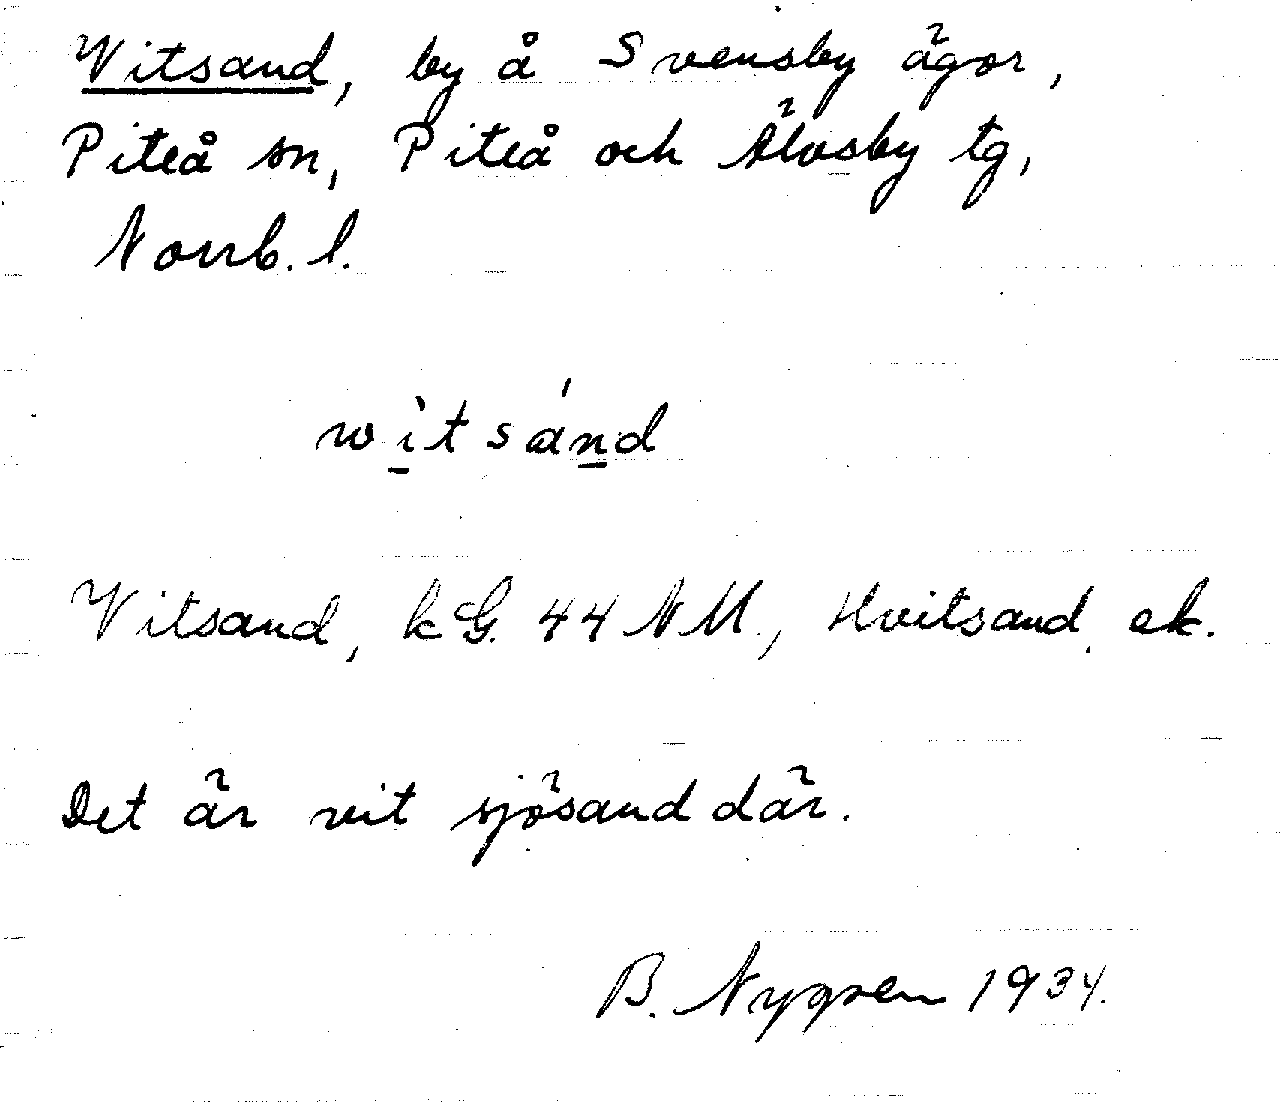 Vitsand, by å Svensby ägor,
Piteå sn, Piteå och Älvsby tg,
Norrb. l.
wìtsánd
Vitsand, kG. 44 NM., Hvitsand, ek.
Det är vit sjösand där.
B. Nygren 1934.